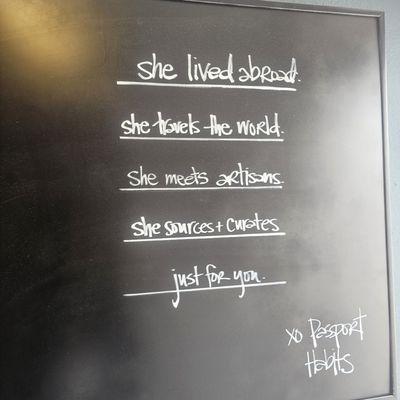 she lived abroad.
she travels the world.
she meets artisans.
she sources + curates
just for you.
xo Passport
Habits